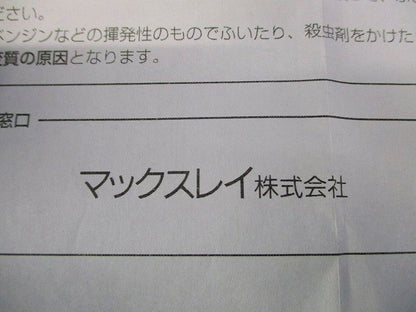 ださい。
ベンジンなどの揮発性のものでふいたり、殺虫剤をかけた
変質の原因となります。
窓口
マックスレイ株式会社